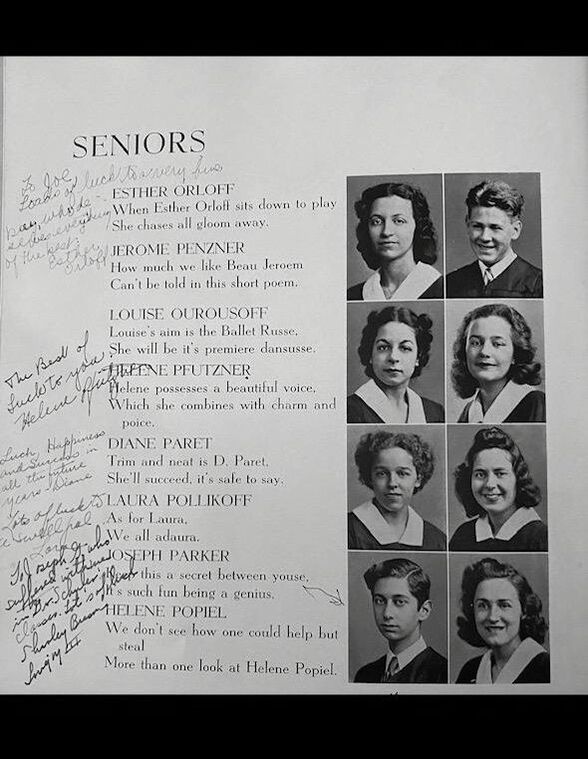 SENIORS
To Joe
Loads of luck to a very fine
boy, who de-
serves everything
of the best.
Esther
Orloff
ESTHER ORLOFF
When Esther Orloff sits down to play
She chases all gloom away.
JEROME PENZNER
How much we like Beau Jeroem
Can't be told in this short poem.
LOUISE OUROUSOFF
Louise's aim is the Ballet Russe,
She will be it's premiere dansusse.
The Best of
Luck to you
Helene Pfutzner
HELENE PFUTZNER
Helene possesses a beautiful voice,
Which she combines with charm and
poice.
Luck, Happiness
and Success in
all the future
years. Diane
DIANE PARET
Trim and neat is D. Paret,
She'll succeed, it's safe to say.
Lots of luck to
a swell pal
Laura
LAURA POLLIKOFF
As for Laura,
We all adaura.
To Joseph, who
suffered with me
in Mr.
classes. Lots of luck
Shirley
JOSEPH PARKER
this a secret between youse,
It's such fun being a genius.
HELENE POPIEL
We don't see how one could help but
steal
More than one look at Helene Popiel.